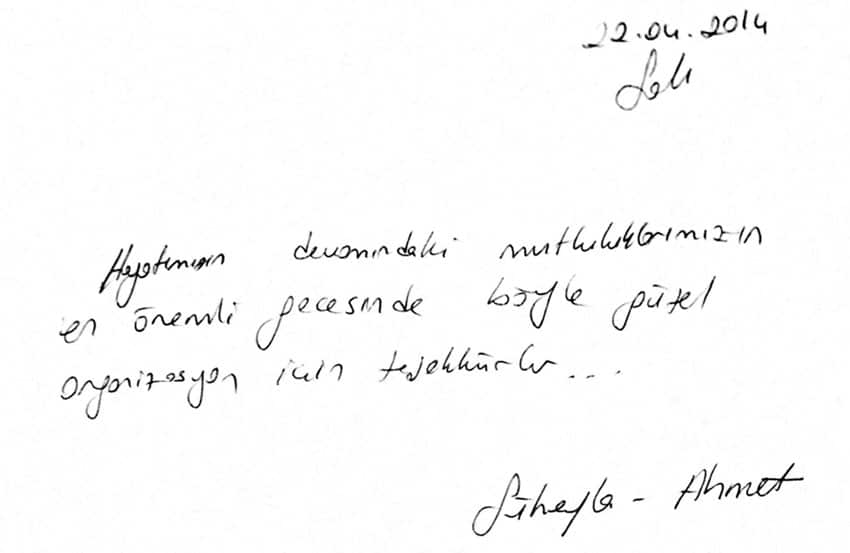 22.04.2014
Salı
Hayatımızın devamındaki mutluluklarımızın
en önemli gecesinde böyle güzel
organizasyon için teşekkürler...
Süheyla - Ahmet